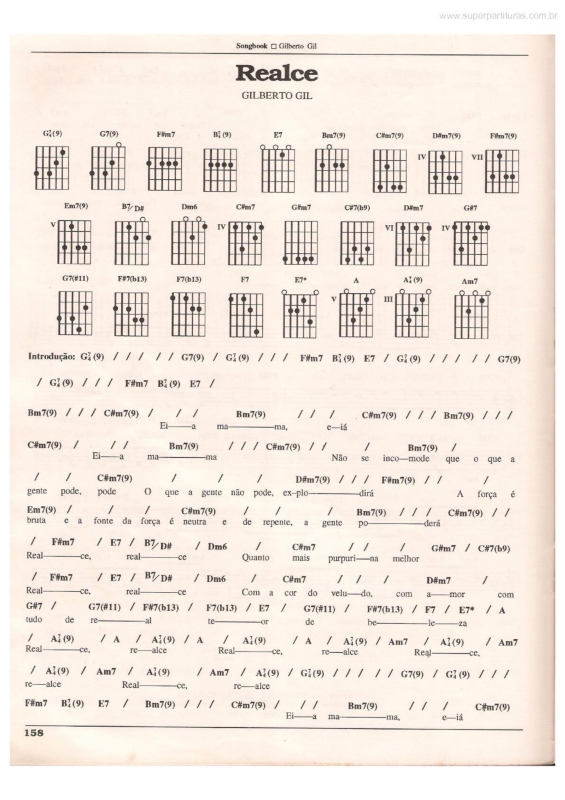 www.superpartituras.com.br
Songbook □ Gilberto Gil
Realce
GILBERTO GIL
G7/4(9) G7(9) F#m7 B7/4(9) E7 Bm7(9) C#m7(9) D#m7(9) F#m7(9)
IV VII
Em7(9) B7/D# Dm6 C#m7 G#m7 C#7(b9) D#m7 G#7
V IV VI IV
G7(#11) F#7(b13) F7(b13) F7 E7* A A7/4(9) Am7
V III
Introdução: G7/4(9) / / / / / G7(9) / G7/4(9) / / / F#m7 B7/4(9) E7 / G7/4(9) / / / / / G7(9)
/ G7/4(9) / / / F#m7 B7/4(9) E7 /
Bm7(9) / / / C#m7(9) / / / Bm7(9) / / / C#m7(9) / / / Bm7(9) / / /
Ei——a ma————ma, e—iá
C#m7(9) / / / Bm7(9) / / / C#m7(9) / / / Bm7(9) /
Ei——a ma————ma Não se inco—mode que o que a
/ / C#m7(9) / / / D#m7(9) / / / F#m7(9) / / /
gente pode, pode O que a gente não pode, ex-plo————dirá A força é
Em7(9) / / / C#m7(9) / / / Bm7(9) / / / C#m7(9) / /
bruta e a fonte da força é neutra e de repente, a gente po————derá
/ F#m7 / E7 / B7/D# / Dm6 / C#m7 / / / G#m7 / C#7(b9)
Real————ce, real————ce Quanto mais purpuri—na melhor
/ F#m7 / E7 / B7/D# / Dm6 / C#m7 / / / D#m7 /
Real————ce, real————ce Com a cor do velu—do, com a—mor com
G#7 / G7(#11) / F#7(b13) / F7(b13) / E7 / G7(#11) / F#7(b13) / F7 / E7* / A
tudo de re————al te————or de be————le——za
/ A7/4(9) / A / A7/4(9) / A / A7/4(9) / A / A7/4(9) / Am7 / A7/4(9) / Am7
Real————ce, re—alce Real————ce, re—alce Real————ce,
/ A7/4(9) / Am7 / A7/4(9) / Am7 / A7/4(9) / G7/4(9) / / / / / G7(9) / G7/4(9) / / /
re—alce Real————ce, re—alce
F#m7 B7/4(9) E7 / Bm7(9) / / / C#m7(9) / / / Bm7(9) / / / C#m7(9)
Ei——a ma————ma, e—iá
158